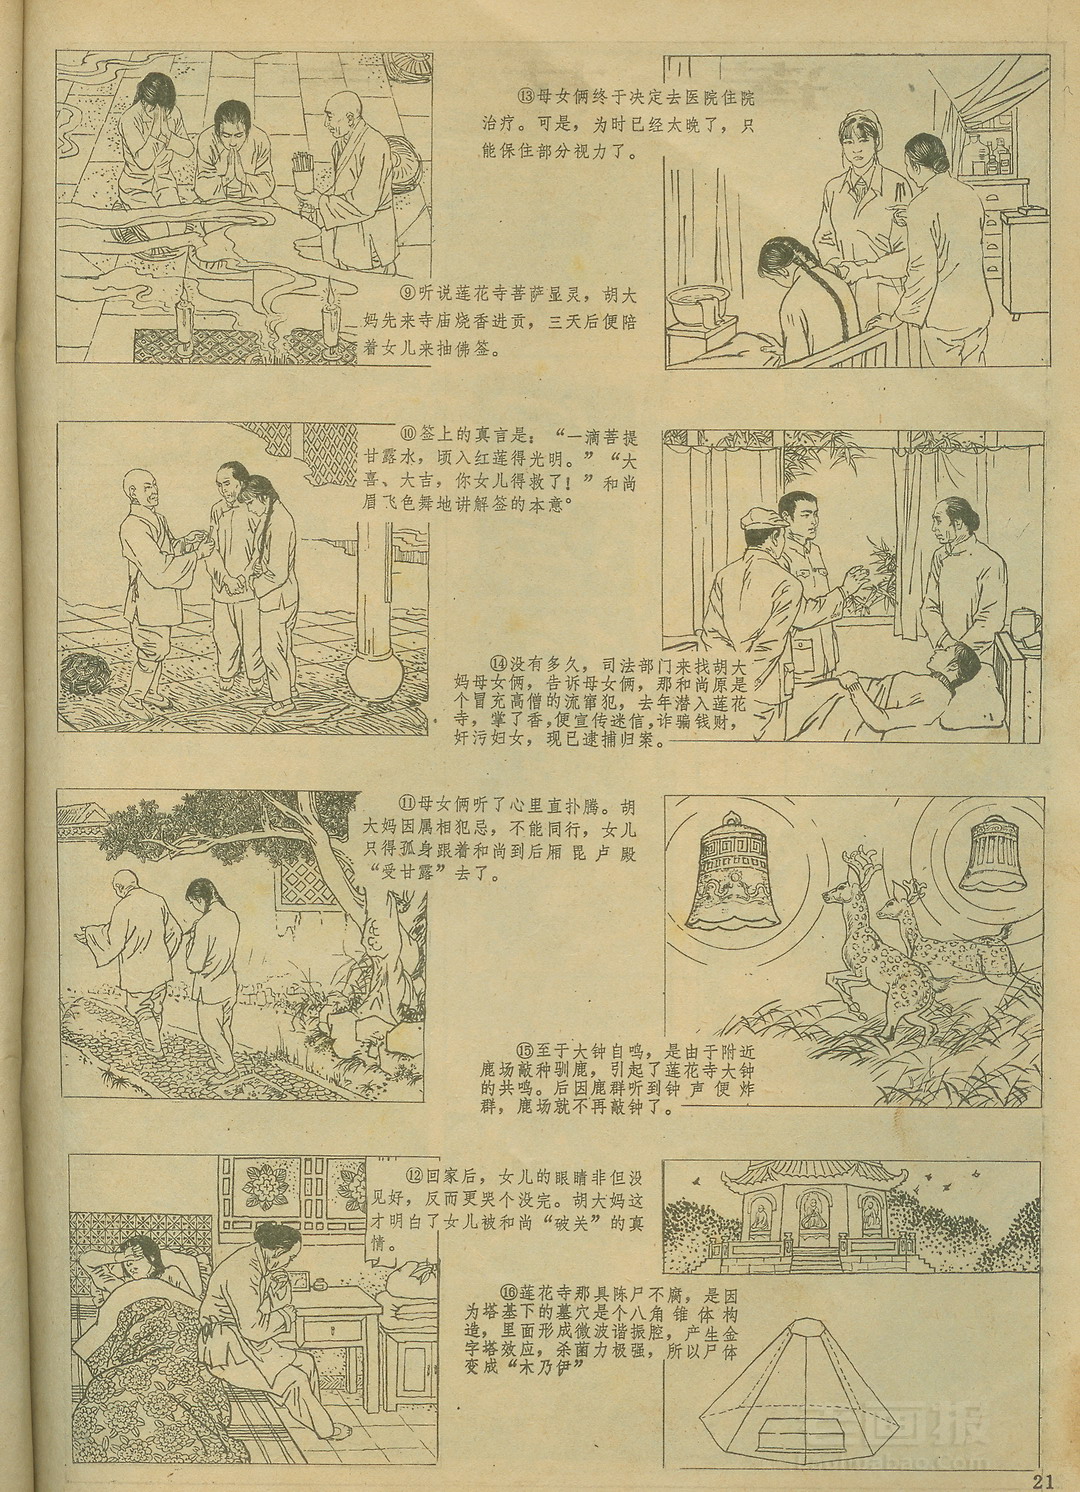 ⑨听说莲花寺菩萨显灵，胡大
妈先来寺庙烧香进贡，三天后便陪
着女儿来抽佛签。
⑩签上的真言是：“一滴菩提
甘露水，顷入红莲得光明。”“大
喜、大吉，你女儿得救了！”和尚
眉飞色舞地讲解签的本意。
⑪母女俩听了心里直扑腾。胡
大妈因属相犯忌，不能同行，女儿
只得孤身跟着和尚到后厢毘卢殿
“受甘露”去了。
⑫回家后，女儿的眼睛非但没
见好，反而更哭个没完。胡大妈这
才明白了女儿被和尚“破关”的真
情。
⑬母女俩终于决定去医院住院
治疗。可是，为时已经太晚了，只
能保住部分视力了。
⑭没有多久，司法部门来找胡大
妈母女俩，告诉母女俩，那和尚原是
个冒充高僧的流窜犯，去年潜入莲花
寺，掌了香，便宣传迷信，诈骗钱财，
奸污妇女，现已逮捕归案。
⑮至于大钟自鸣，是由于附近
鹿场敲种驯鹿，引起了莲花寺大钟
的共鸣。后因鹿群听到钟声便炸
群，鹿场就不再敲钟了。
⑯莲花寺那具陈尸不腐，是因
为塔基下的墓穴是个八角锥体构
造，里面形成微波谐振腔，产生金
字塔效应，杀菌力极强，所以尸体
变成“木乃伊”
21